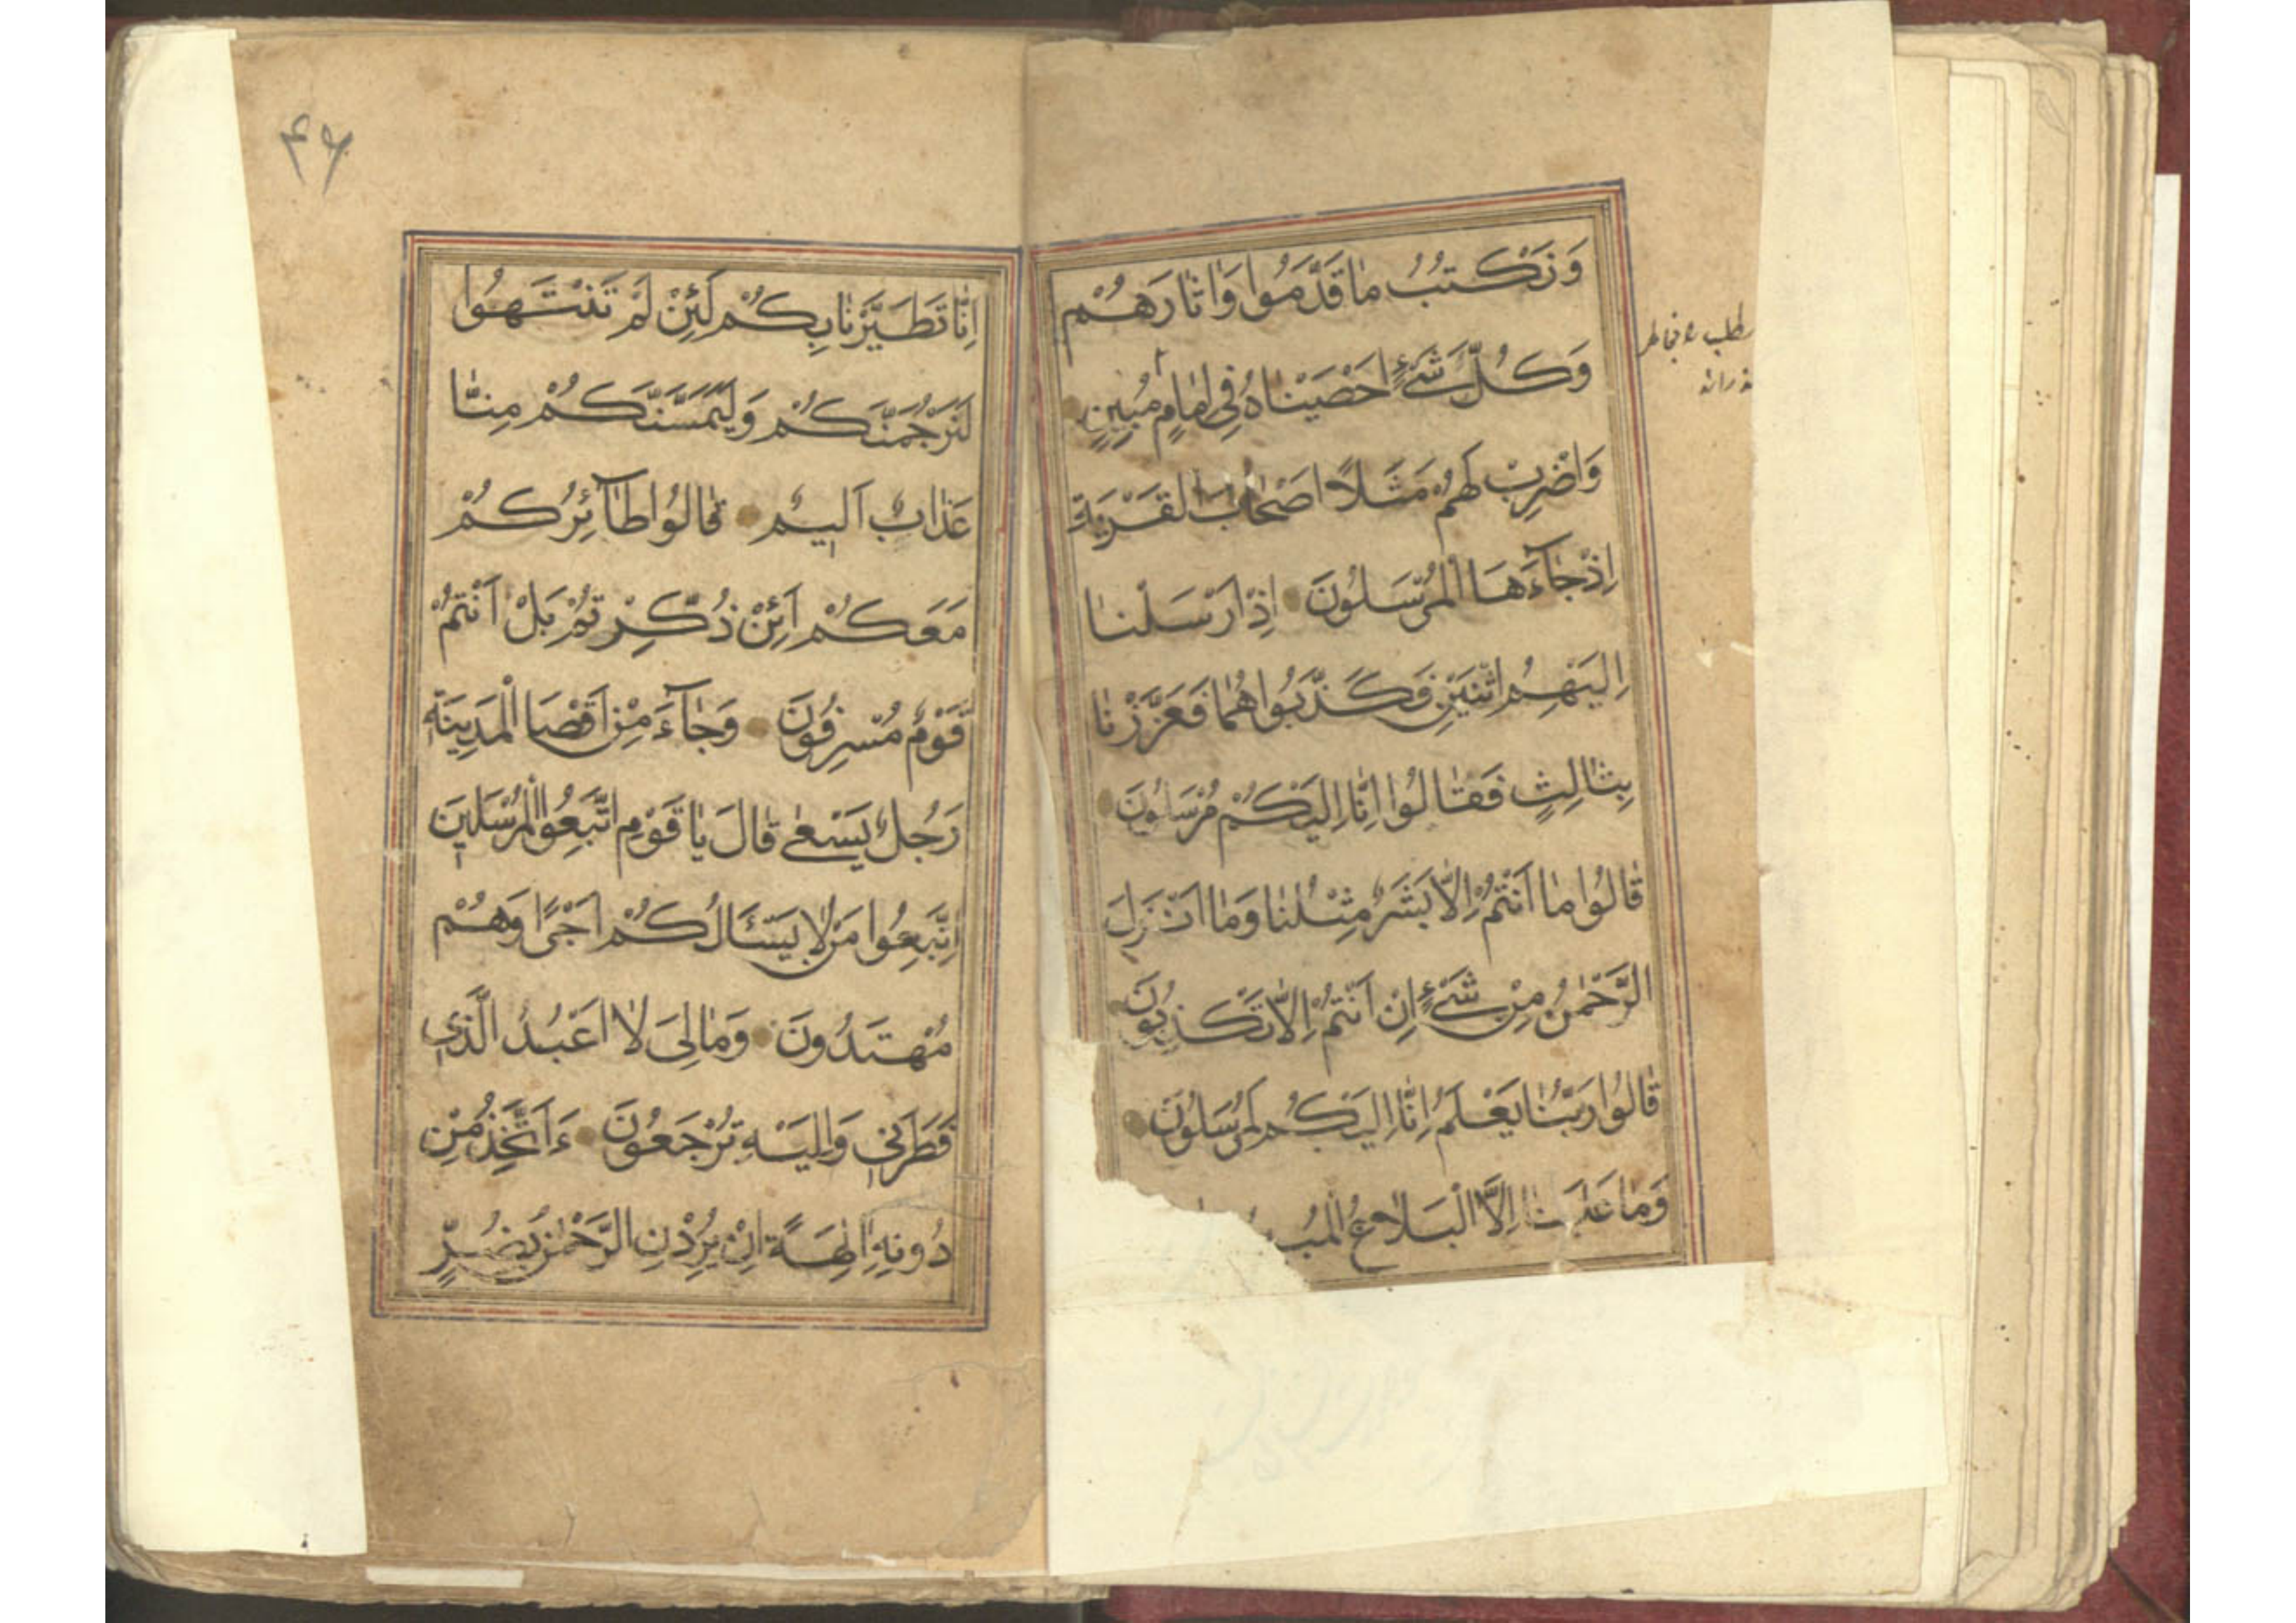 وَنَكْتُبُ مٰا قَدَّمُوا وَاٰثٰارَهُمْ
وَكُلَّ شَیْءٍ اَحْصَیْنٰاهُ فِی اِمٰامٍ مُبِینٍ
وَاضْرِبْ لَهُمْ مَثَلًا اَصْحٰابَ الْقَرْیَةِ
اِذْ جٰآءَهَا الْمُرْسَلُونَ اِذْ اَرْسَلْنٰا
اِلَیْهِمُ اثْنَیْنِ فَكَذَّبُواهُمٰا فَعَزَّزْنٰا
بِثٰالِثٍ فَقٰالُوا اِنّٰا اِلَیْكُمْ مُرْسَلُونَ
قٰالُوا مٰا اَنْتُمْ اِلّٰا بَشَرٌ مِثْلُنٰا وَمٰا اَنْزَلَ
الرَّحْمٰنُ مِنْ شَیْءٍ اِنْ اَنْتُمْ اِلّٰا تَكْذِبُونَ
قٰالُوا رَبُّنٰا یَعْلَمُ اِنّٰا اِلَیْكُمْ لَمُرْسَلُونَ
وَمٰا عَلَیْنٰا اِلَّا الْبَلٰاغُ
۴۶
اِنّٰا تَطَیَّرْنٰا بِكُمْ لَئِنْ لَمْ تَنْتَهُوا
لَنَرْجُمَنَّكُمْ وَلَیَمَسَّنَّكُمْ مِنّٰا
عَذٰابٌ اَلِیمٌ قٰالُوا طٰآئِرُكُمْ
مَعَكُمْ اَئِنْ ذُكِّرْتُمْ بَلْ اَنْتُمْ
قَوْمٌ مُسْرِفُونَ وَجٰآءَ مِنْ اَقْصَا الْمَدِینَةِ
رَجُلٌ یَسْعٰی قٰالَ یٰا قَوْمِ اتَّبِعُوا الْمُرْسَلِینَ
اِتَّبِعُوا مَنْ لٰا یَسْئَالُكُمْ اَجْرًا وَهُمْ
مُهْتَدُونَ وَمٰا لِیَ لٰا اَعْبُدُ الَّذِی
فَطَرَنِی وَاِلَیْهِ تُرْجَعُونَ ءَاَتَّخِذُ مِنْ
دُونِهِ اٰلِهَةً اِنْ یُرِدْنِ الرَّحْمٰنُ بِضُرٍّ